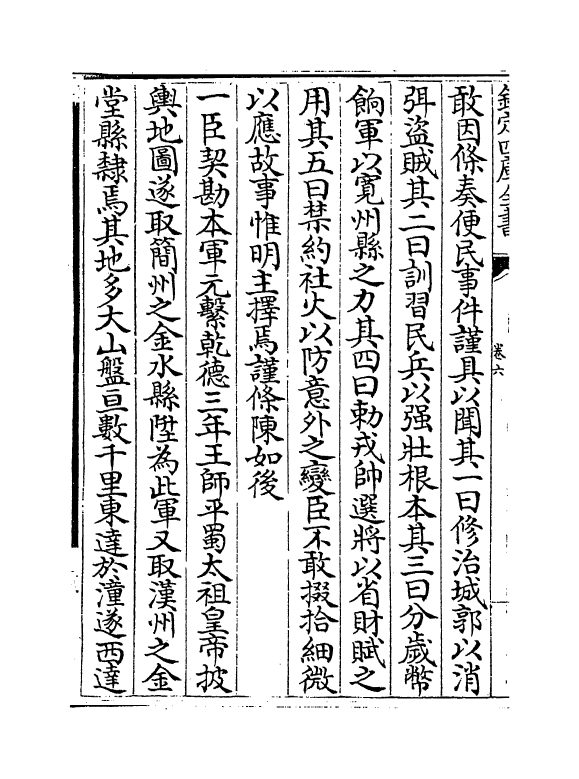 欽定四庫全書
卷六
敢因條奏便民事件謹具以聞其一曰修治城郭以消
弭盜賊其二曰訓習民兵以强壯根本其三曰分歲幣
餉軍以寬州縣之力其四曰勅戎帥選將以省財賦之
用其五曰禁約社火以防意外之變臣不敢掇拾細微
以應故事惟明主擇焉謹條陳如後
一臣契勘本軍元繫乾德三年王師平蜀太祖皇帝披
輿地圖遂取簡州之金水縣陞為此軍又取漢州之金
堂縣隸焉其地多大山盤亘數千里東達於潼遂西達